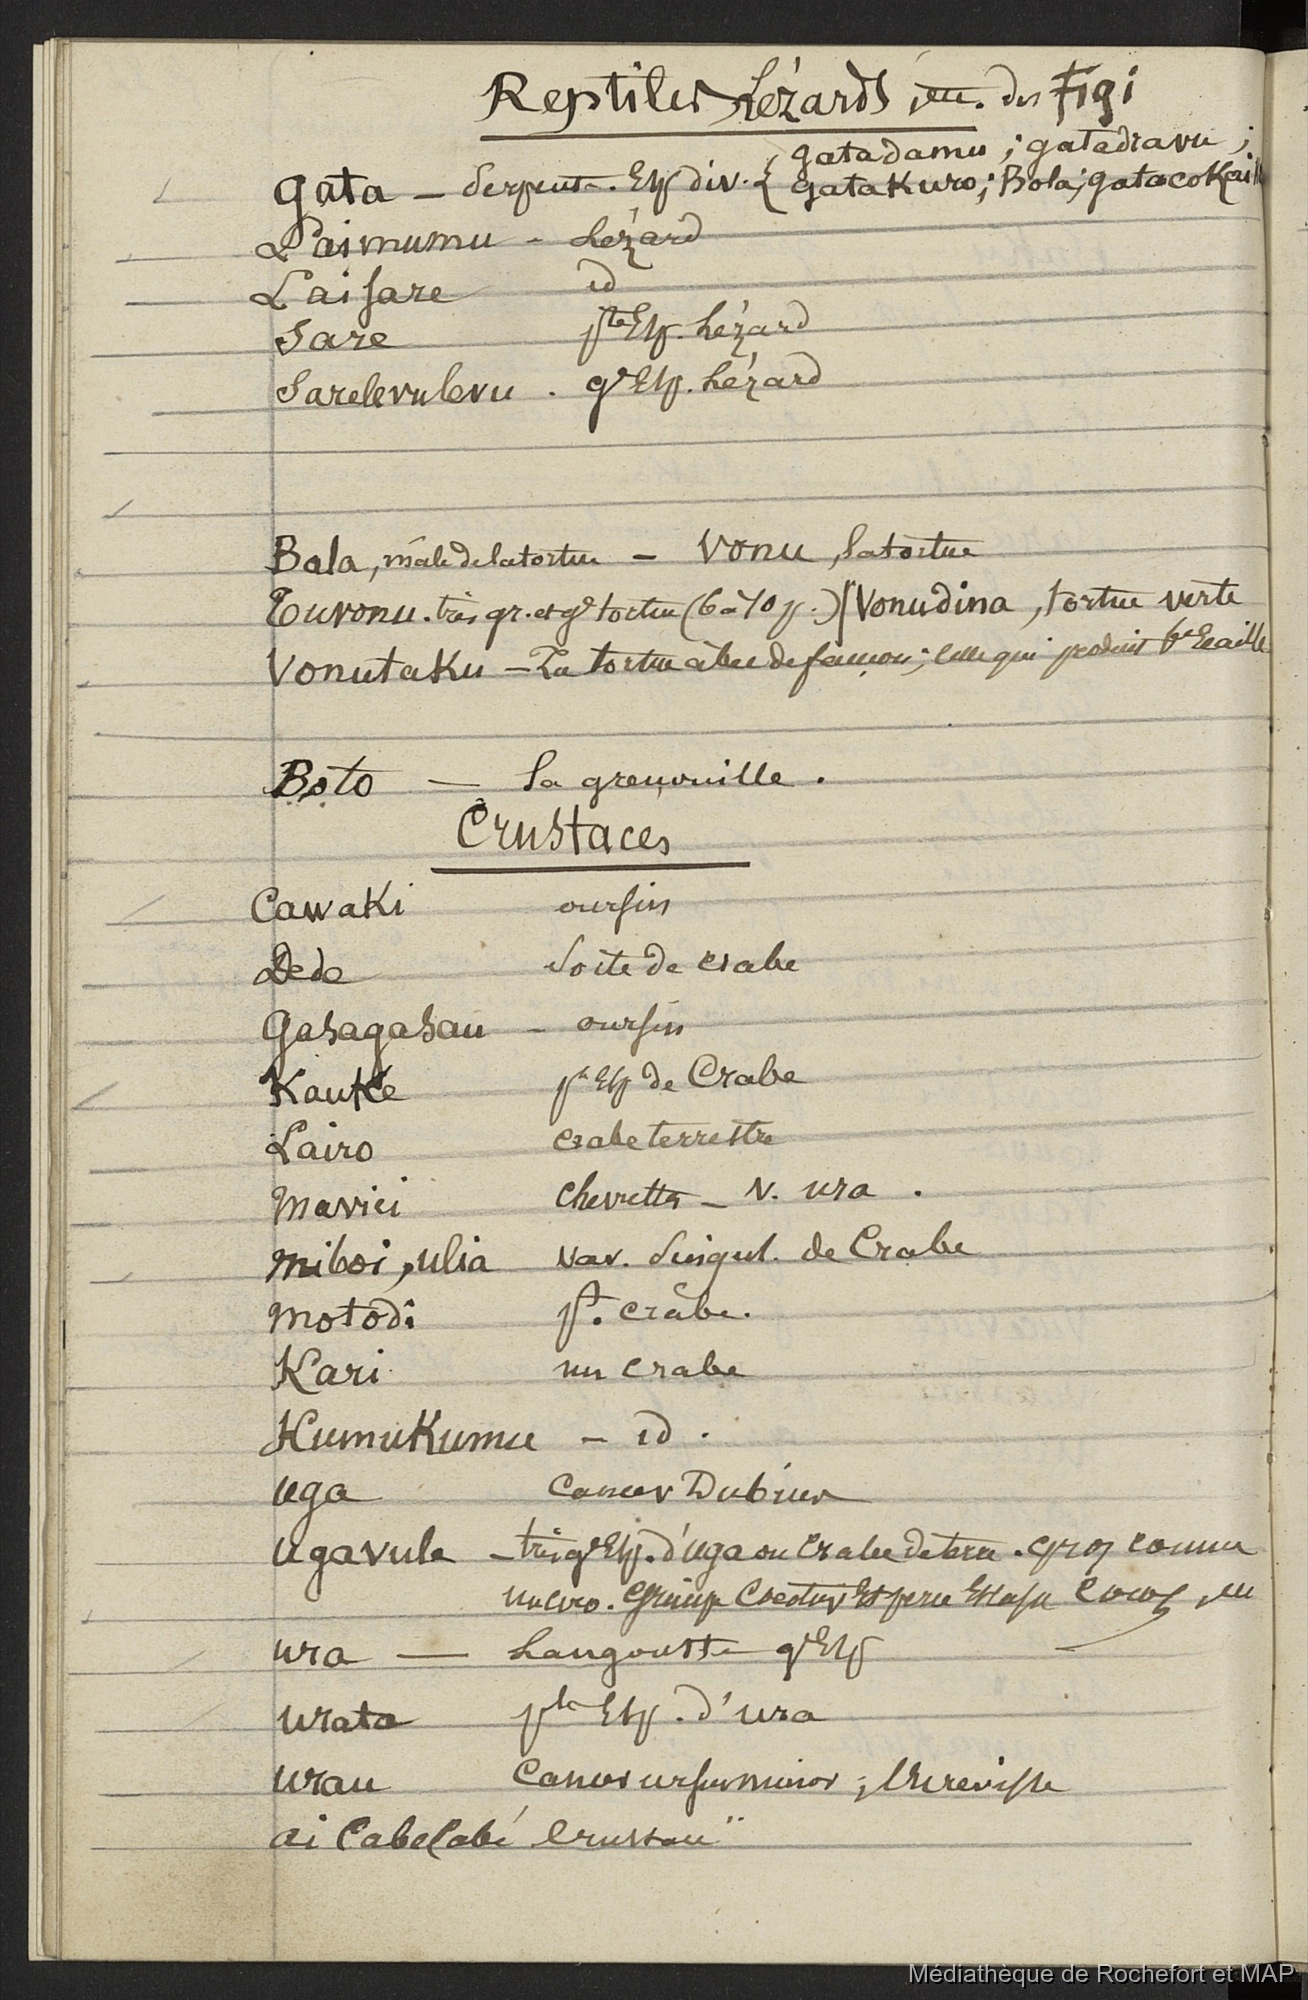 Reptiles, Lézards, etc. des Figi
Gata – Serpents. Esp div. { gatadamu ; gatadravu ;
gatakuro ; Bola ; gata
Laimumu – Lézard
Laisare id
Sare pte Esp. Lézard
Sarelevulevu . gde Esp. Lézard
Bala, mâle de la tortue – Vonu, la tortue
Tuvonu. très gr. et gde tortue (6 à 10 p.) Vonudina, tortue verte
Vonutaku – La tortue à bec de faucon ; celle qui produit Ecaille
Boto — la grenouille.
Crustaces
Cawaki oursin
Dede Sorte de crabe
Gasagasau – oursin
Kauke pte Esp de Crabe
Lairo crabe terrestre
Mavici Chevrette – V. ura .
miboi, ulia var. Singul. de Crabe
Motodi pt. crabe.
Kari un crabe
Kumukumu – id .
uga Cancer
ugavule – très gde Esp. d'uga ou Crabe de terre .
ura — Langouste gde Esp
urata pte Esp. d'ura
urau Cancer minor ; l'écrevisse